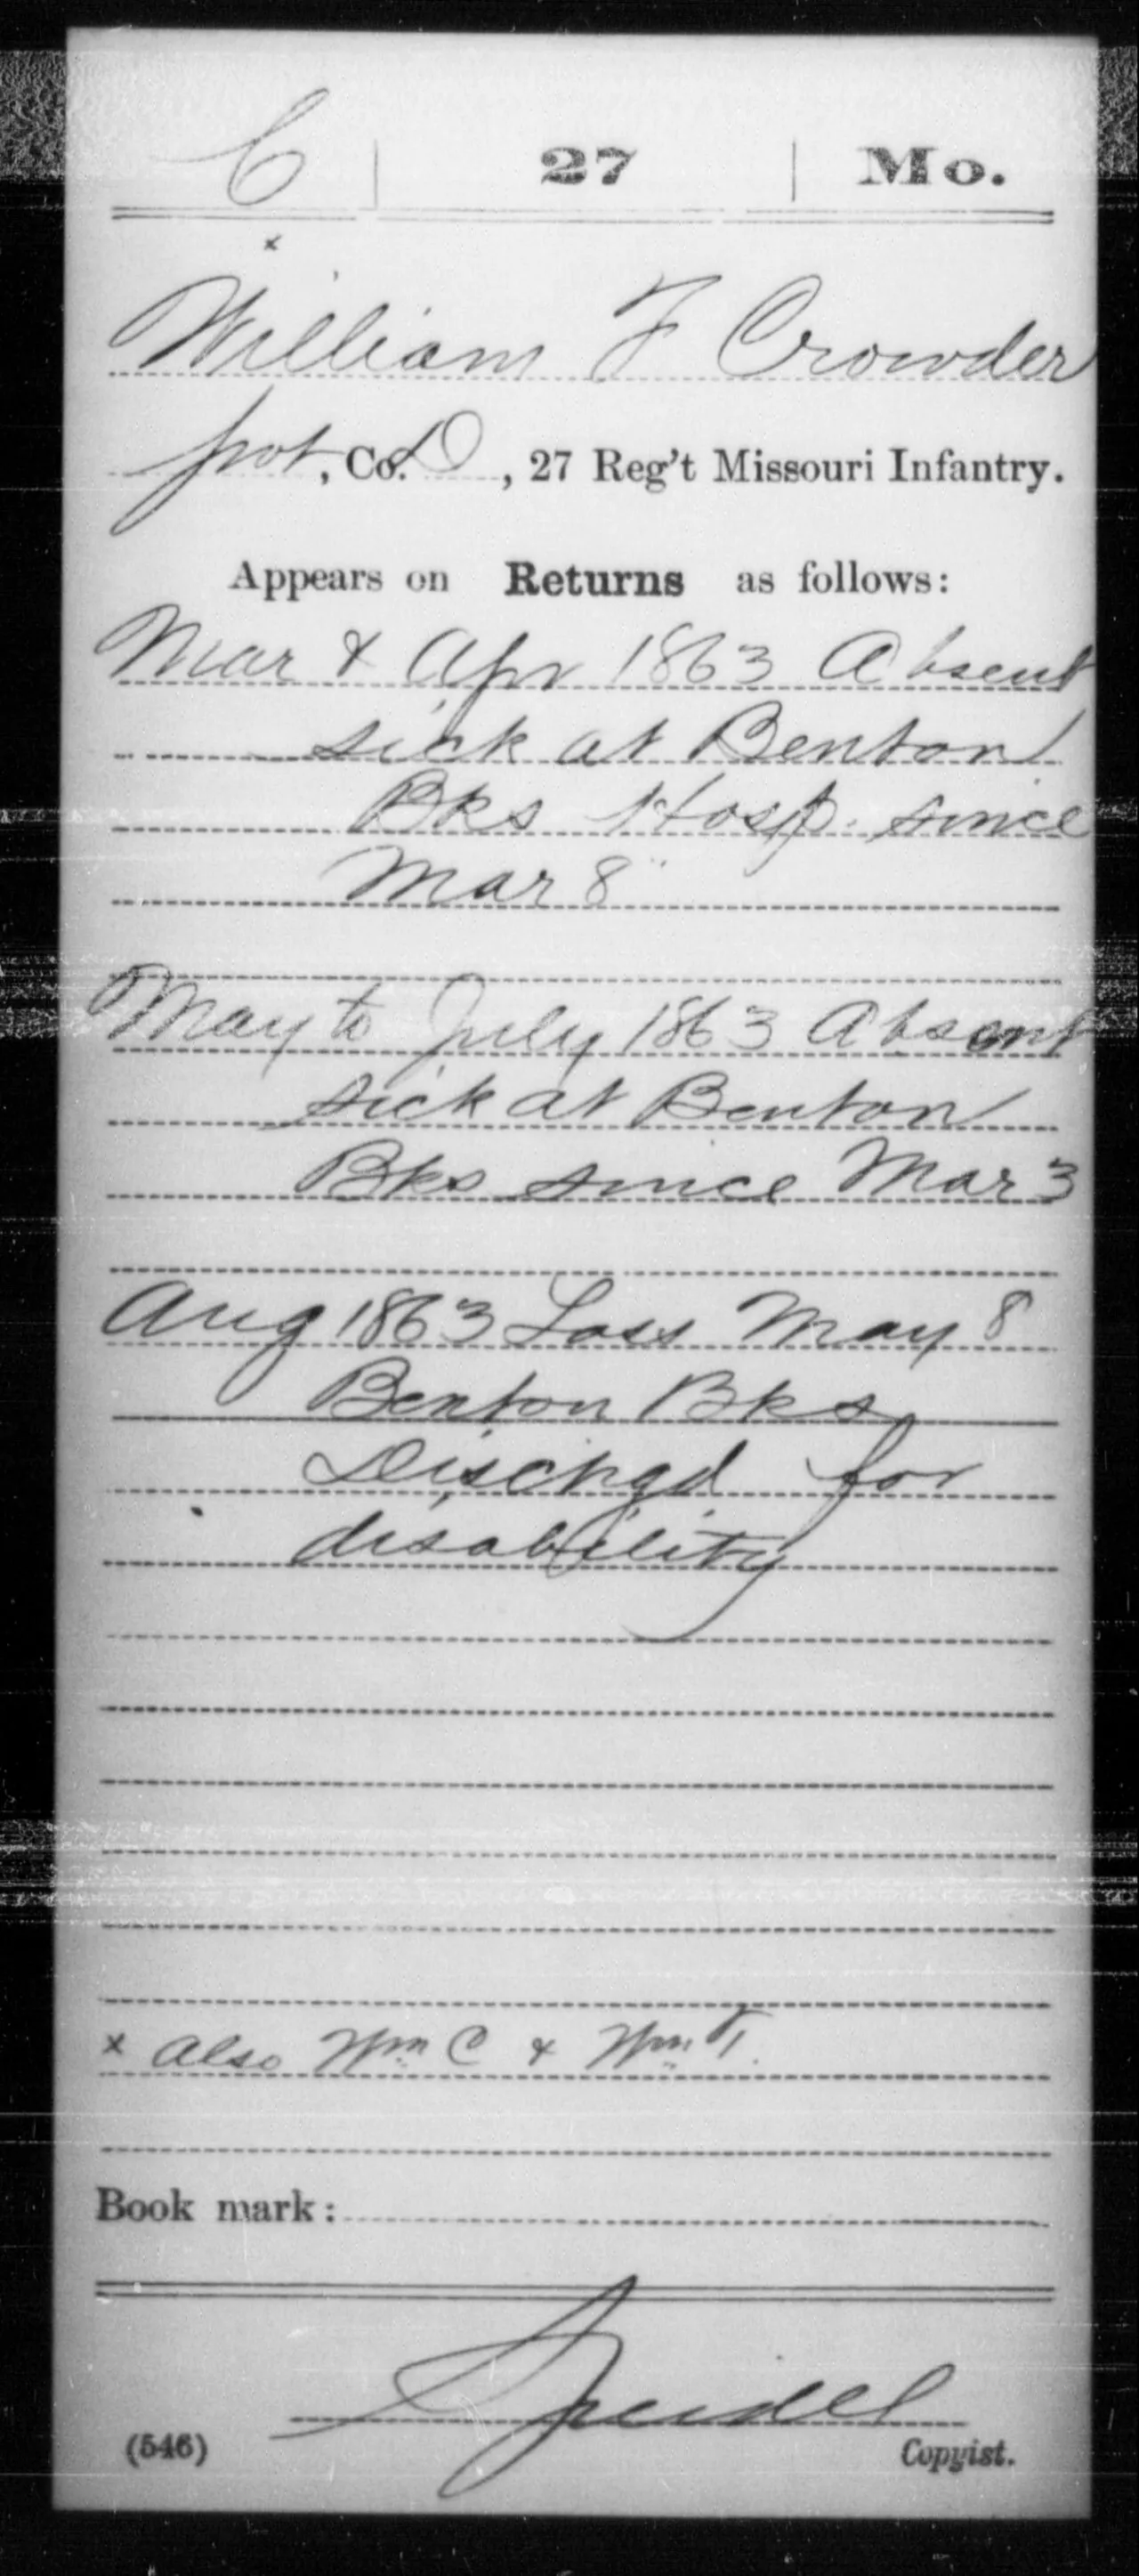 C | 27 | Mo.
x
William F Crowder
pvt, Co. D, 27 Reg't Missouri Infantry.
Appears on Returns as follows:
Mar & Apr 1863 Absent
sick at Benton
Bks Hosp. since
Mar 8"
May to July 1863 Absent
sick at Benton
Bks since Mar 3
Aug 1863 Loss May 8
Benton Bks
Dischgd for
disability
x also Wm C & Wm T.
Book mark:
Speidel
(546) Copyist.